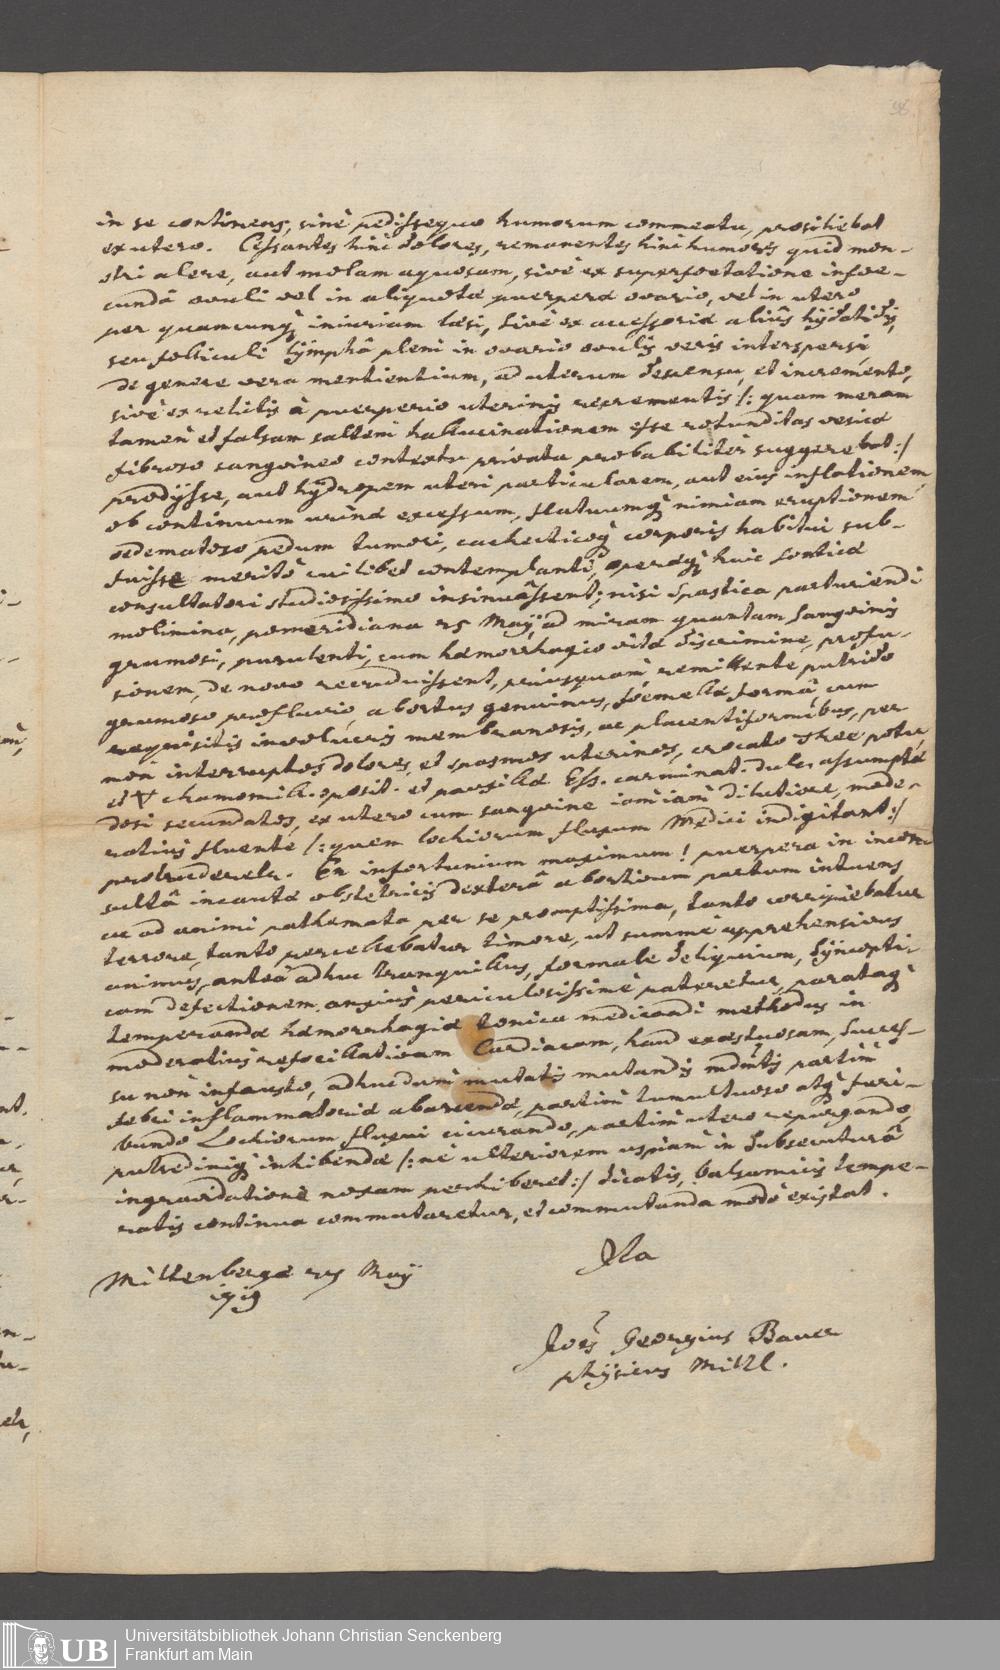 96.
in se continens, sine pedissequo humorum commeatu, prosiliebat
ex utero. Cessantes hinc dolores, remanentes hinc humores quid mon-
stri alere, aut molam aquosam, sive ex superfoetatione infoe-
cunda ovuli vel in aliquota puerpera ovario, vel in utero
per quamcunq iniuriam laesi, sive ex accessoria alius hydatidis,
seu folliculi lymphâ pleni in ovario ovulis veris interspersi
de genere vera mentientium, ad uterum descensu, et incremento,
sive ex relictis à puerperio uterinis recrementis /: quam meram
tamen et falsam saltem hallucinationem esse rotunditas vesica
fibroso sanguineo contextu privata probabiliter suggerebat :/
prodysse, aut hydropem uteri particularem, aut eius inflationem
ob continuum urina excessum, flatuumq nimiam eruptionem
oedematoso pedum tumori, cachecticoq corporis habitui sub-
fuisse merito cuilibet contemplanti, operaq huic sontica
consultatori studiosissimo insinuassent; nisi spastica parturiendi
molimina, pomeridiana 25 Maÿ, ad miram quantam sanguinis
grumosi, purulenti, cum haemorrhagico vita discrimine, profu-
sionem, de novo recruduissent, priusquam, remittente putrido
grumoso profluvio, abortus genuinus, foemella forma, cum
requisitis involucris membranosis, ac placentiformibus, per
non interruptos dolores, et spasmos uterinos, crocato Thee potu
et chamomill. oposit. et pauxilla Ess. carminat. dulc. assumpta
dosi secundatos, ex utero cum sanguine iamiam dilutiore, mode-
ratius fluente /: quem lochiorum fluxum Medici indigitant :/
protruderetr. En infortunium maximum! puerpera in incon-
sultâ incauta obstetricis dexterâ abortivum partum intuens
ac ad animi pathemata per se promptissima, tanto corripiebatur
terrore, tanto percellebatur timore, ut summe apprehensivus
animus, anteâ adhuc tranquillus, formale deliquium, syncopti-
cam defectionem anxius periculosissime pateretur, parataq
temperanda haemorrhagia tonica medicandi methodus in
moderatius refocillativam Cardiacam, haud exaestuosam, succes-
su non infausto, adhucdum mutatis mutandis partim
febri inflammatoria abarcenda, partim tumultuoso atq furi-
bundo Lochiorum fluxui cicurando, partim utero repurgando,
putrediniq inhibenda /: ne ulteriorem uspiam in subsecutura
ingravidatione noxam perhiberet :/ dicatis, balsamicis tempe-
ratis continua commutaretur, et commutanda modo existat.
Ita
Miltenberga 27 Maÿ
1719
Joes Georgius Bauer
physicus Miltl.
Universitätsbibliothek Johann Christian Senckenberg
Frankfurt am Main
UB